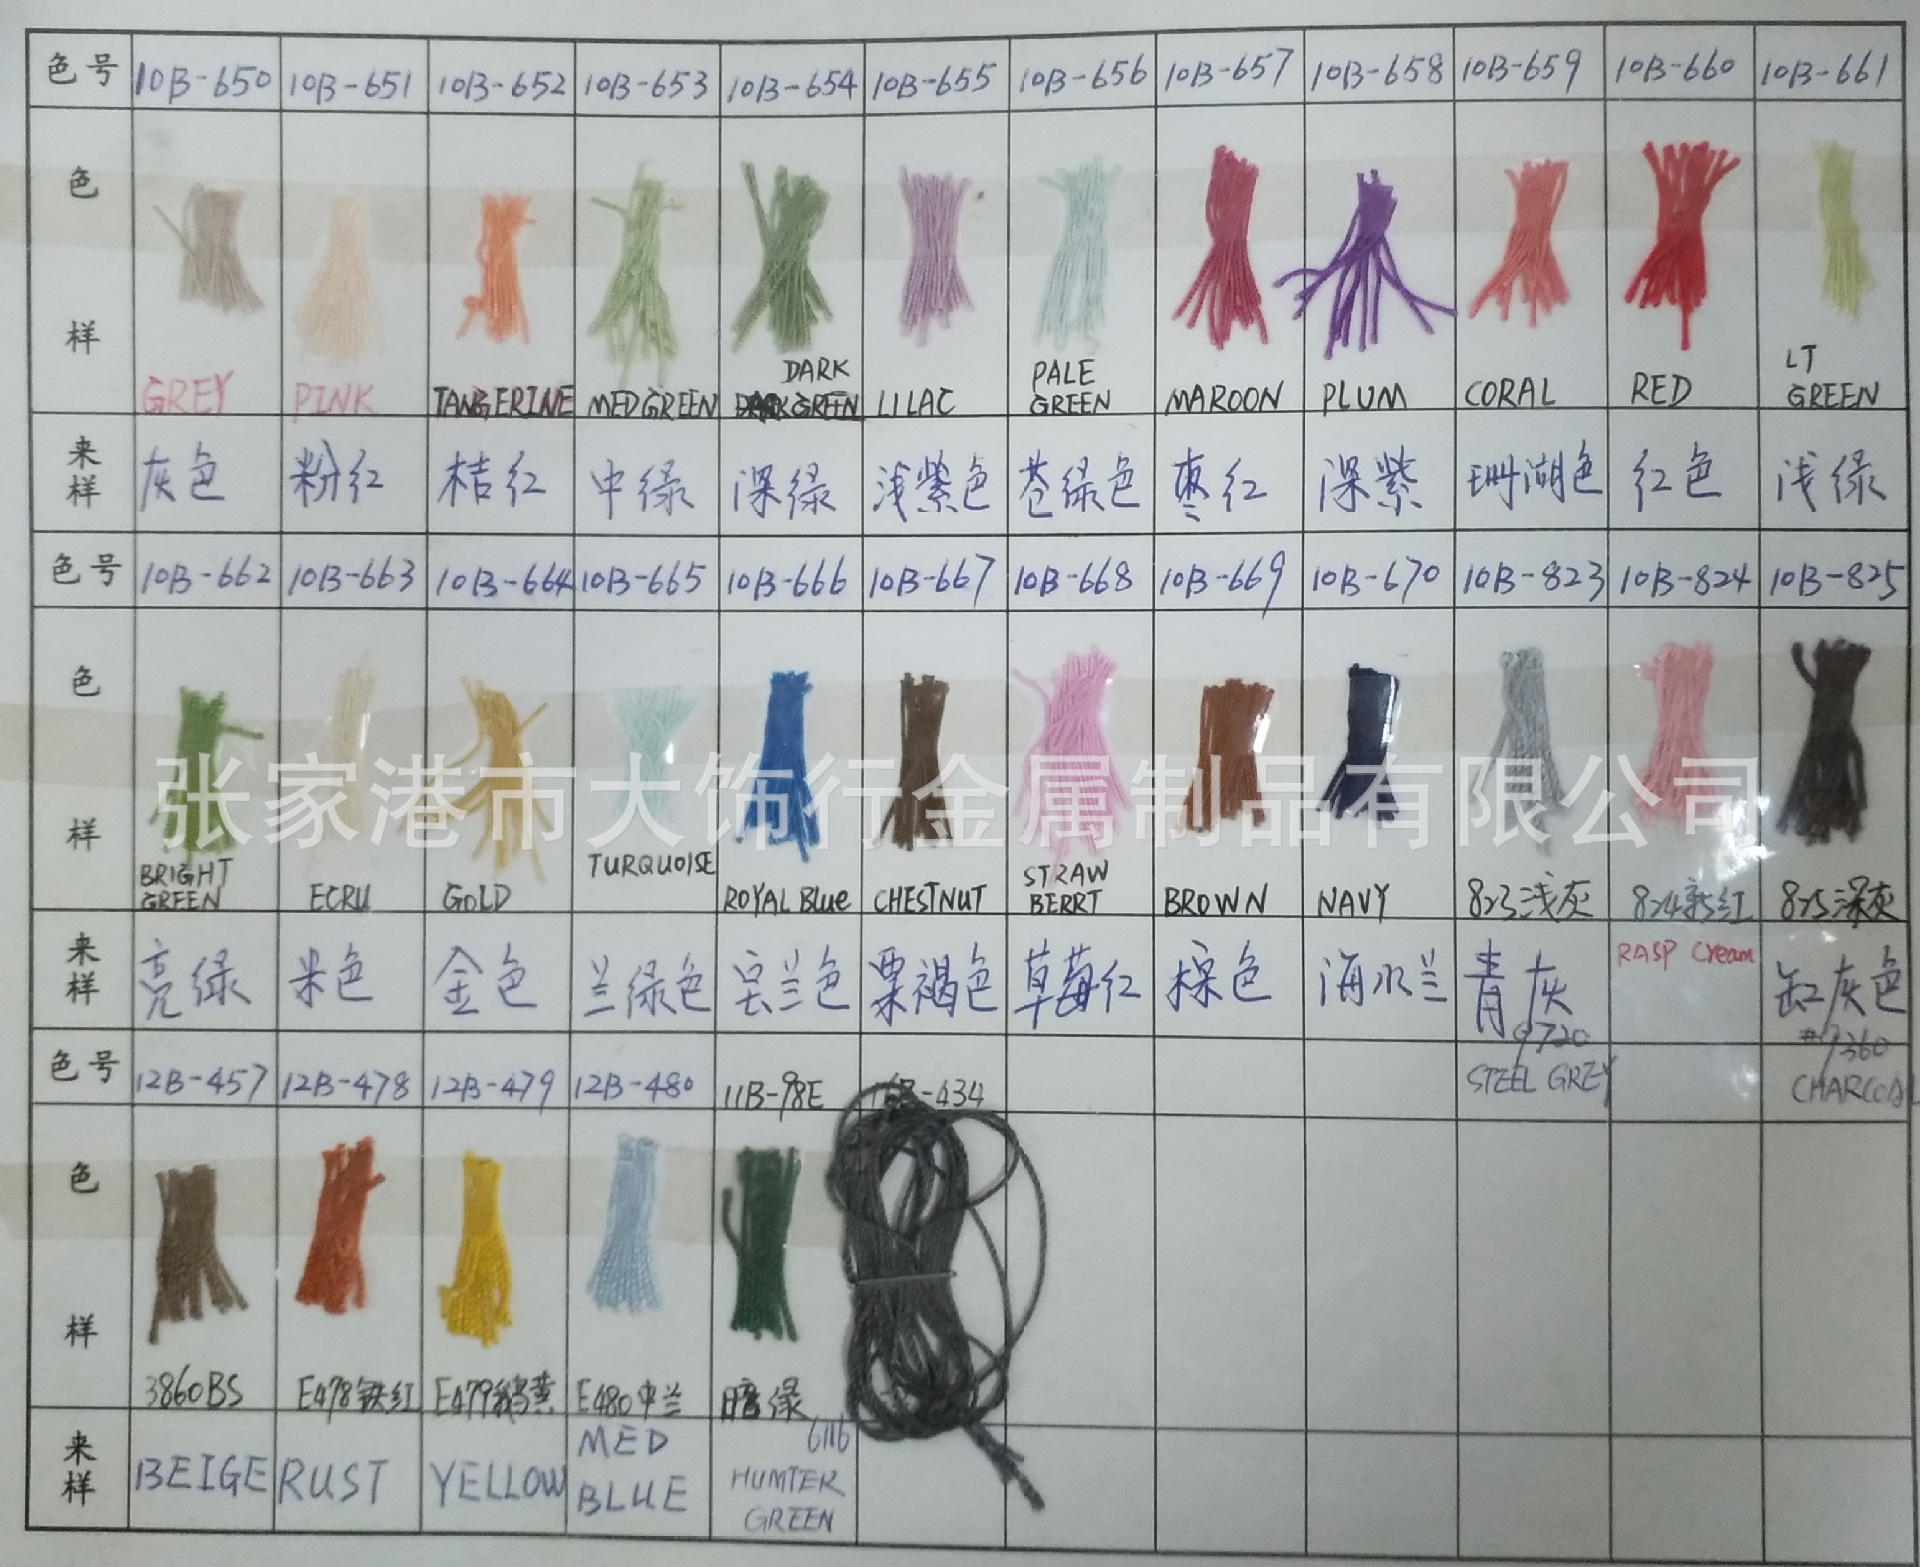 色号 10B-650 10B-651 10B-652 10B-653 10B-654 10B-655 10B-656 10B-657 10B-658 10B-659 10B-660 10B-661
色
样
GREY PINK TANGERINE MED GREEN DARK GREEN LILAC PALE GREEN MAROON PLUM CORAL RED LT GREEN
来样 灰色 粉红 桔红 中绿 深绿 浅紫色 苍绿色 枣红 深紫 珊湖色 红色 浅绿
色号 10B-662 10B-663 10B-664 10B-665 10B-666 10B-667 10B-668 10B-669 10B-670 10B-823 10B-824 10B-825
色
张家港市大饰行金属制品有限公司
样
BRIGHT GREEN ECRU GOLD TURQUOISE ROYAL Blue CHESTNUT STRAW BERRT BROWN NAVY 823浅灰 824新红 825深灰
来样 亮绿 米色 金色 兰绿色 宝兰色 栗褐色 草莓红 棕色 海水兰 青灰 9720 RASP Cream 缸灰色 #9360
色号 12B-457 12B-478 12B-479 12B-480 11B-98E 16B-434 STEEL GREY CHARCOAL
色
样
3860BS E478铁红 E479鹅黄 E480中兰 暗绿
来样 BEIGE RUST YELLOW MED BLUE 6116 HUMTER GREEN